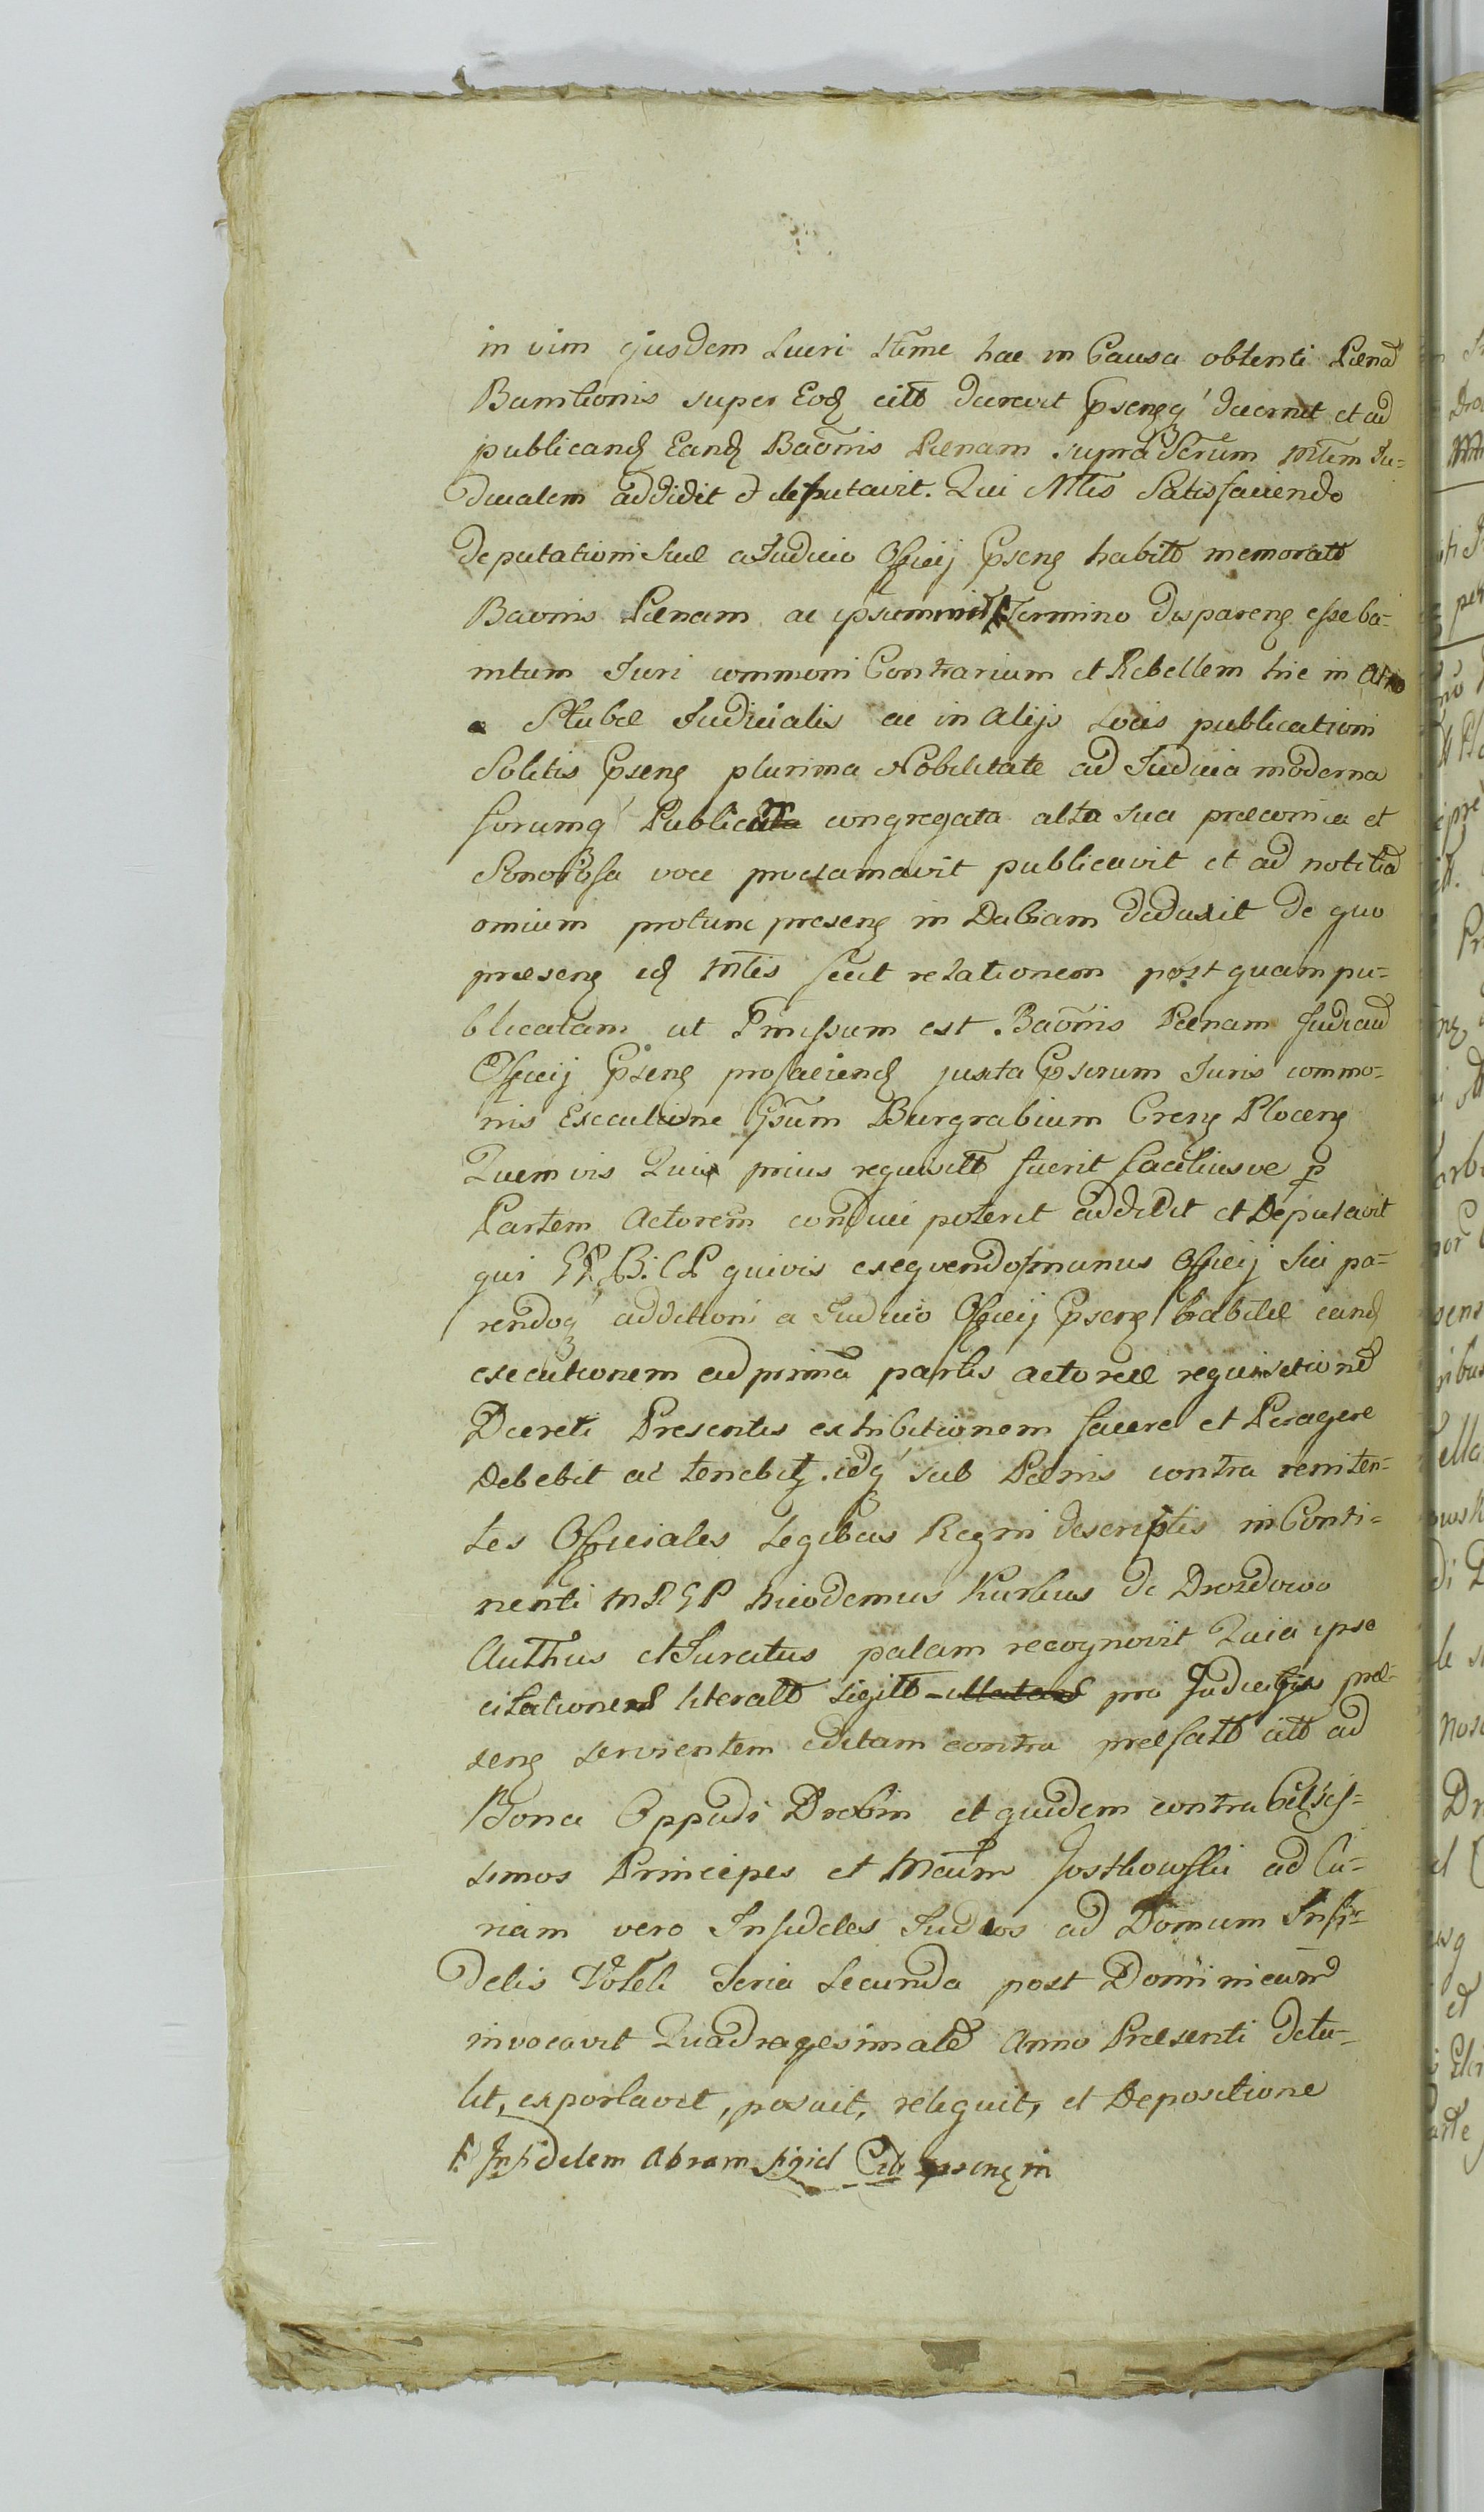 in vim ejusdem Lucri Ltime hac in Causa obtenti Pænã
Bannitionis super Eodꝫ citt decrevit Ꝕsenꝫq' decernit et ad
publicandꝫ Eandꝫ Baõnis Pænam supra Dctum Mtẽm Ju-
dicialem addidit et deputavit. Qui Mtis Satisfaciendo
deputationi Suæ a Judicio Officij Ꝕsenꝫ habitt memoratt
Baonis Pænam ac ipsum citt Termino disparenꝫ esse ba-
nitum Juri communi Contrarium et Rebellem hic in Atrio
Stubæ Judicialis ac in Alijs Locis publicationi
Solitis Ꝕsenꝫ plurima Nobilitate ad Judicia moderna
forumq' Publicũ congregata alta sua præconica et
Sonorosa voce proclamavit publicavit et ad notitiã
omnium protunc presenꝫ in Dubiam deduxit de quo
præsenꝫ idꝫ Mtis fecit relationem post quam pu-
blicatam ut Pmissum est. Baõnis Pænam Judiciũ
Officij Ꝕsenꝫ pro faciendꝫ juxta Ꝕscrum Juris commu-
nis Executione Gsum Burgrabium Crenꝫ Plocenꝫ
Quemvis Quis prius requisitt fuerit faciliusve ꝑ
Partem Actorem conduci poterit addidit et Deputavit
qui GP. B. CP quivis exequendo munus Officij Sui pa-
rendoq' additioni a Judicio Officij Ꝕsenꝫ habitæ eandꝫ
executionem ad primã partis actoreæ requisitionẽ
Decreti Presentis exhibitionem facere et Peragere
Debebit ac tenebitꝫ idq' sub Pænis contra reniten-
tes Officiales Legibus Regni descriptis in Conti-
nenti MRGP Nicodemus Kurkus de Drozdowo
Authus et Juratus palam recognovit Quia ipse
citationem literalt sigilt pro Judicijs præ-
senꝫ servientem editam contra præfatt citt ad
Bona Oppidi Drobin et quidem contra Celsis-
simos Principes et Mcum Jostkowski ad Cu-
riam vero Infideles Judæos ad Domum Infi-
delis Votek Feria Secunda post Dominicam
invocavit Quadragesimalẽ Anno Præsenti detu-
lit, exportavit, posuit, reliquit, et Depositione
F. Infidelem Abram Ꝕsenꝫ in